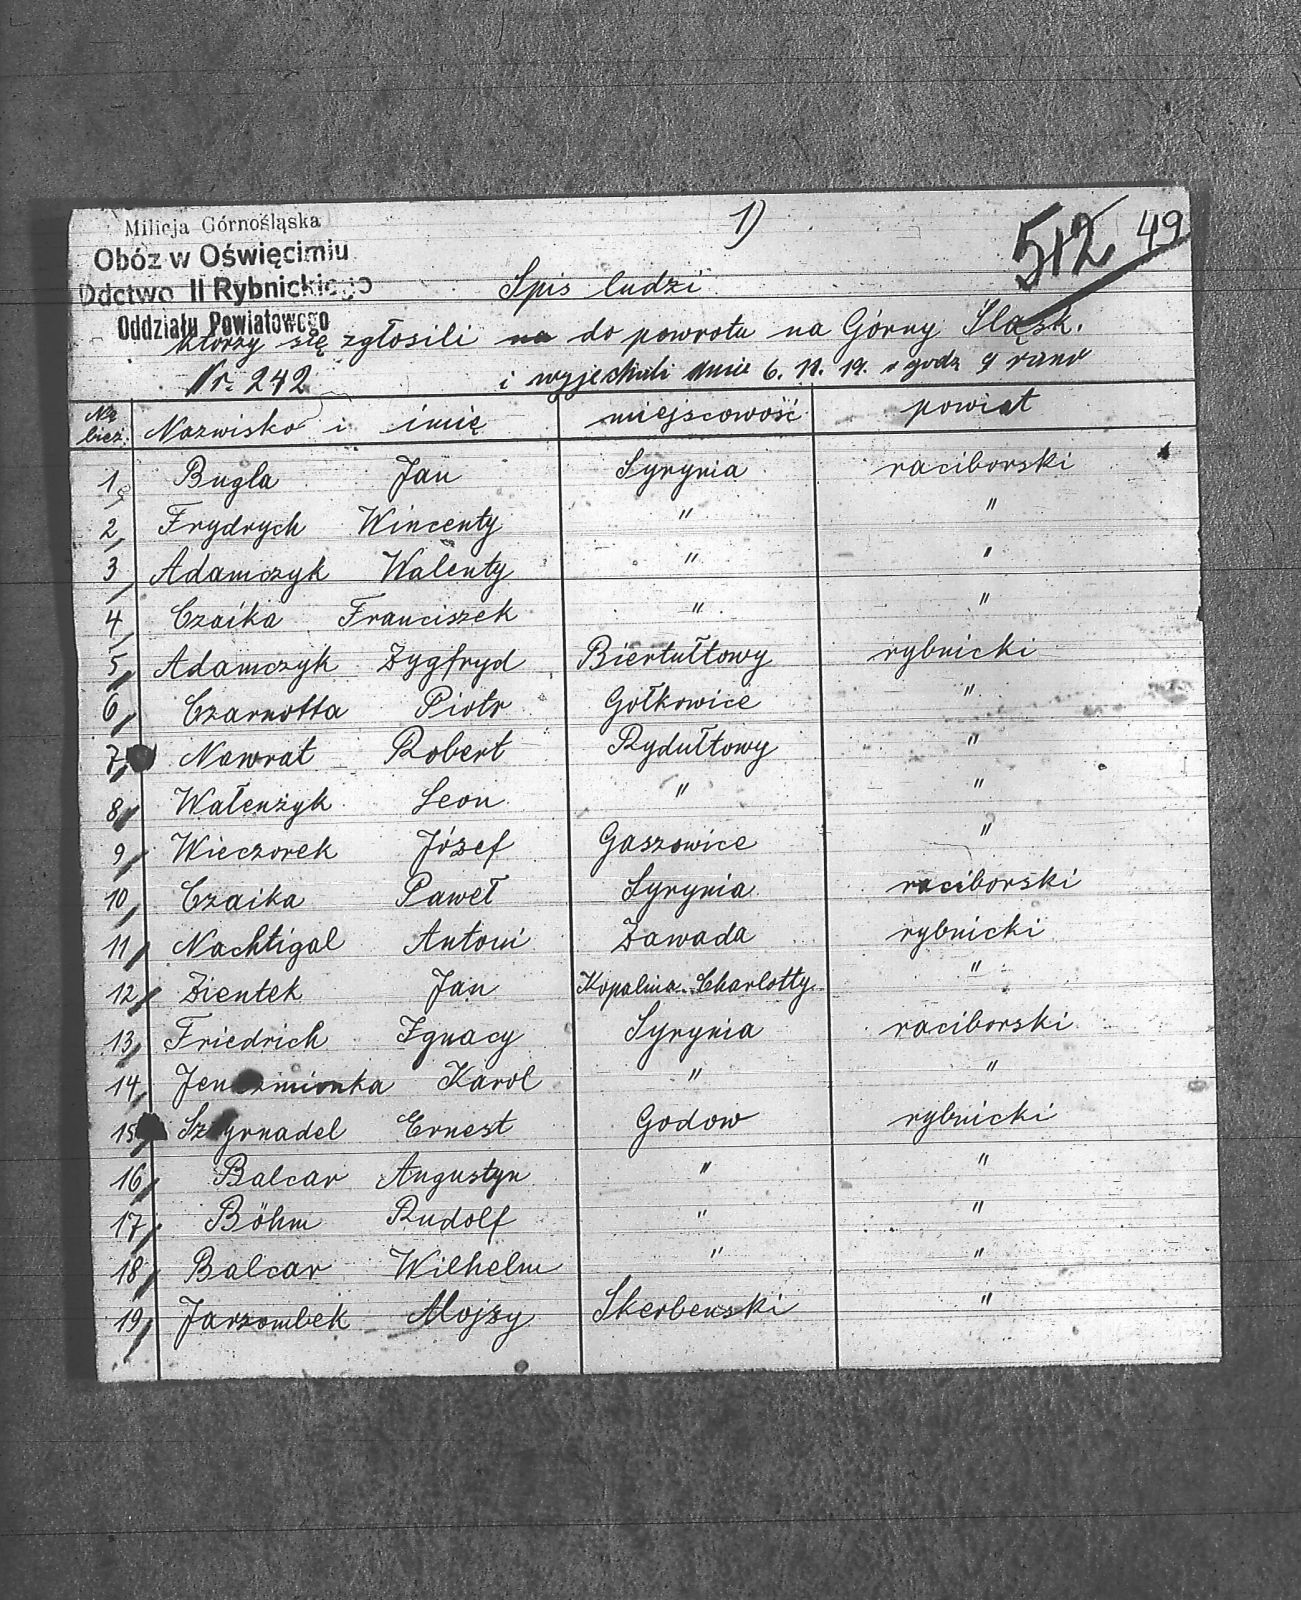 1)
512 49
Milicja Górnośląska
Obóz w Oświęcimiu
Ddctwo II Rybnickiego
Oddziału Powiatowego
Spis ludzi
którzy się zgłosili do powrotu na Górny Śląsk.
Nr. 242 i wyjechali dnia 6. 11. 19. o godz 9 rano
No bież. Nazwisko i imię miejscowość powiat
1, Bugla Jan Syrynia raciborski
2, Frydrych Wincenty " "
3, Adamczyk Walenty " "
4, Czaika Franciszek " "
5, Adamczyk Zygfryd Biertułtowy rybnicki
6, Czarnotta Piotr Gołkowice "
7, Nawrat Robert Rydułtowy "
8, Wałenżyk Leon " "
9, Wieczorek Józef Gaszowice "
10, Czaika Paweł Syrynia raciborski
11, Nachtigal Antoni Zawada rybnicki
12, Zientek Jan Kopalnia Charlotty "
13, Friedrich Ignacy Syrynia raciborski
14, Karol " "
15, Ernest Godow rybnicki
16, Balcar Augustyn " "
17, Böhm Rudolf " "
18, Balcar Wilhelm " "
19, Jarzombek Alojzy Skerbenski "